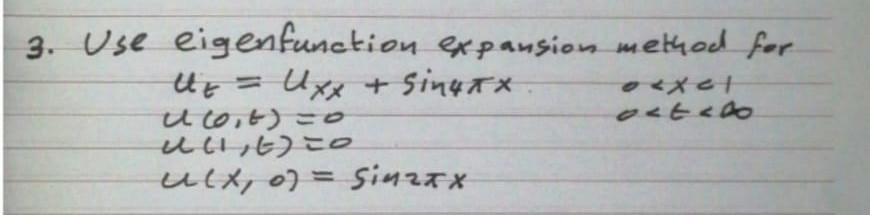 3. Use eigenfunction expansion method for
u_t = u_xx + sin4πx. 0<x<1
u(0,t)=0 0<t<∞
u(1,t)=0
u(x,0) = sin2πx